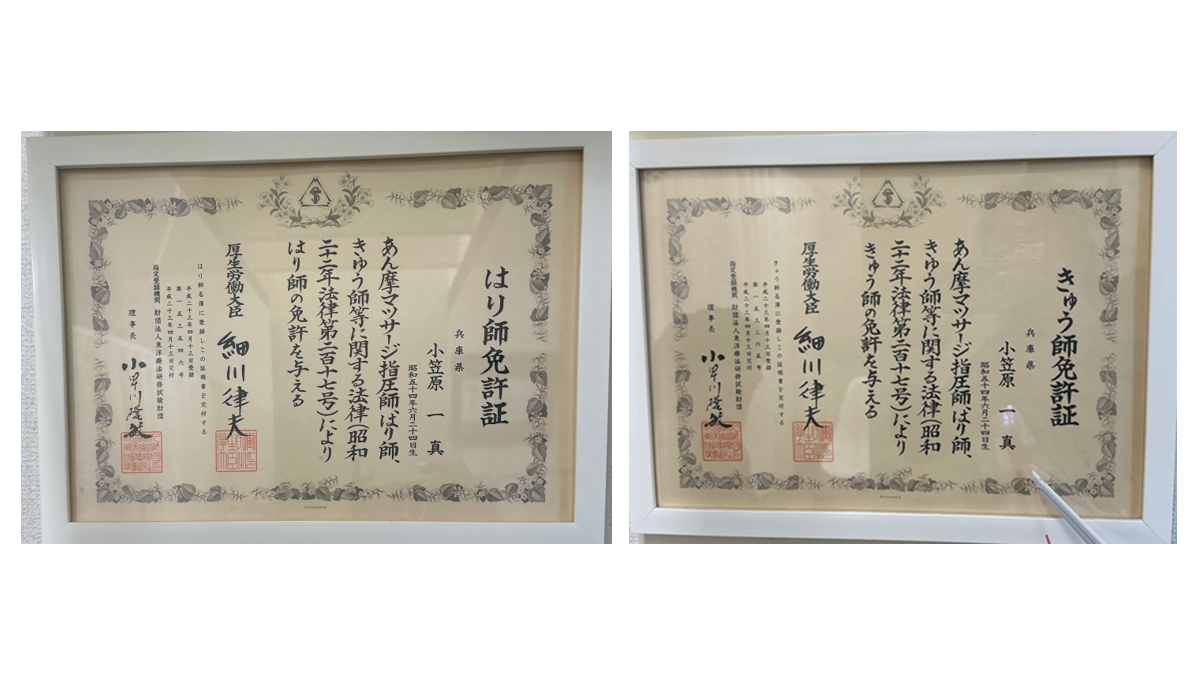 はり師免許証
兵庫県
小笠原 一 真
昭和五十四年六月二十四日生
あん摩マツサージ指圧師、はり師、
きゅう師等に関する法律(昭和
二十二年法律第二百十七号)により
はり師の免許を与える
厚生労働大臣 細川律夫
はり師名簿に登録しこの証明書を交付する
平成二十三年四月十三日登録
第一五三五四六号
平成二十三年四月十三日交付
指定登録機関 財団法人東洋療法研修試験財団
理事長 小早川隆敏
きゅう師免許証
兵庫県
小笠原 一 真
昭和五十四年六月二十四日生
あん摩マツサージ指圧師、はり師、
きゅう師等に関する法律(昭和
二十二年法律第二百十七号)により
きゅう師の免許を与える
厚生労働大臣 細川律夫
きゅう師名簿に登録しこの証明書を交付する
平成二十三年四月十三日登録
第一五三三二六号
平成二十三年四月十三日交付
指定登録機関 財団法人東洋療法研修試験財団
理事長 小早川隆敏